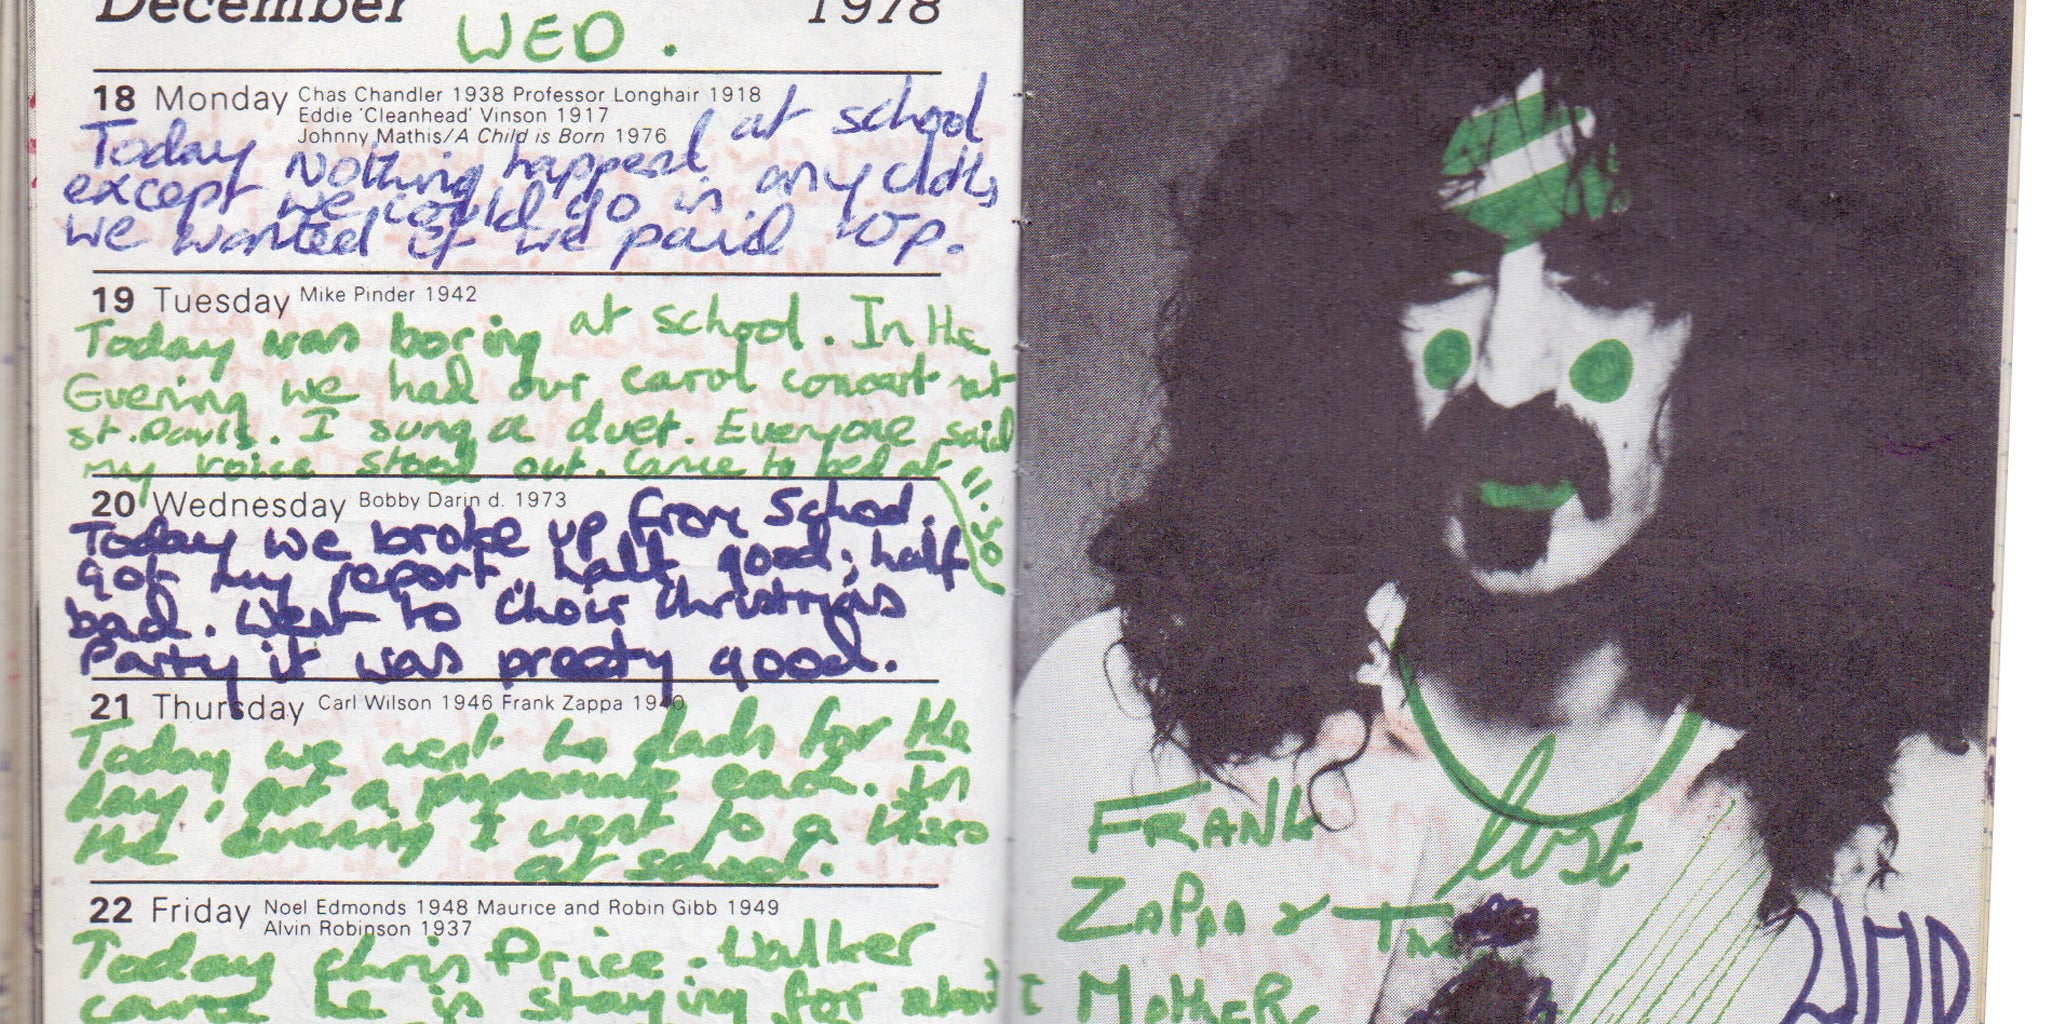 December 1978
WED.
18 Monday Chas Chandler 1938 Professor Longhair 1918
Eddie 'Cleanhead' Vinson 1917
Johnny Mathis/A Child is Born 1976
Today Nothing happend at school
except we could go in any cloths
we wanted if we paid 10p.
19 Tuesday Mike Pinder 1942
Today was boring at school. In the
Evening we had our carol concert at
st. Davis. I sung a duet. Everyone said
my voice stood out. Came to bed at
20 Wednesday Bobby Darin d. 1973
Today we broke up from School.
got my report, half good; half
bad. Went to Choir Christmas
Party it was preety good.
21 Thursday Carl Wilson 1946 Frank Zappa 1940
Today we went to dads for the
day, got a papermate each. In
the evening I went to a
at school.
22 Friday Noel Edmonds 1948 Maurice and Robin Gibb 1949
Alvin Robinson 1937
Today Chris Price-Walker
came he is staying for about
FRANK
ZAPPA & THE
MOTHER
lost